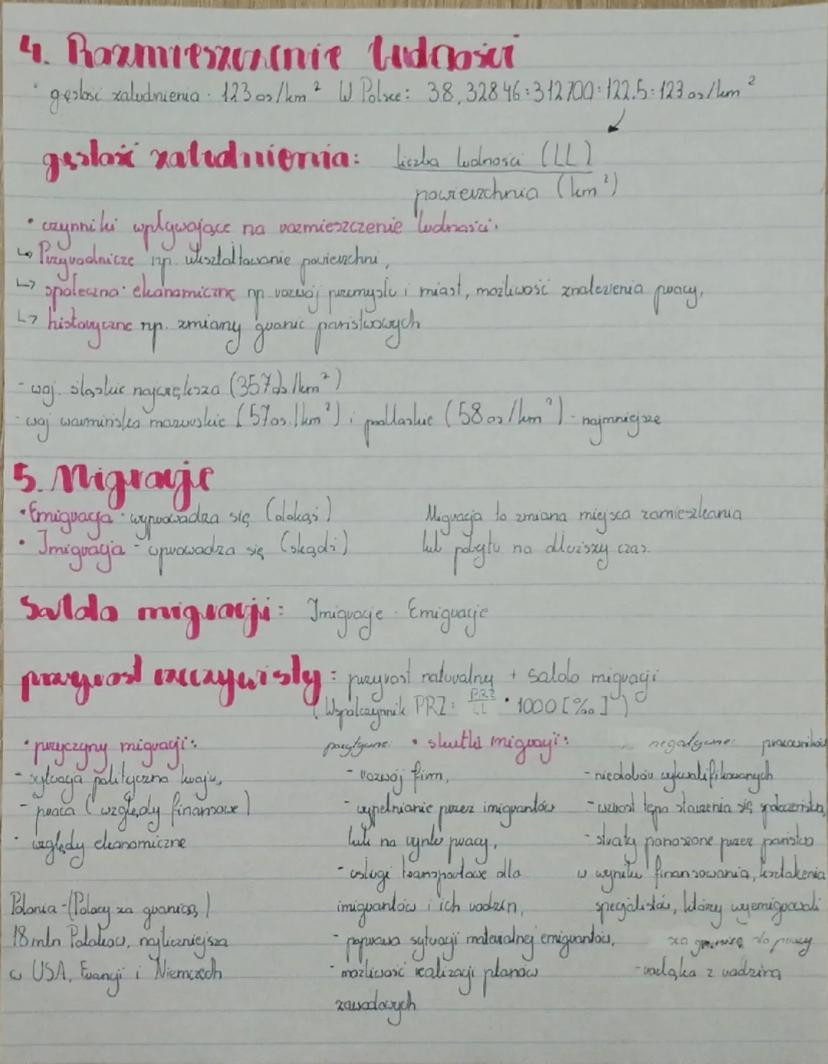 4. Rozmieszczenie ludności
• gęstość zaludnienia - 123 os/km² W Polsce: 38,32846:312700=122.5=123 os/km²
gęstość zaludnienia: liczba ludności (LL)
powierzchnia (km²)
• czynniki wpływające na rozmieszczenie ludności:
↳ Przyrodnicze np. ukształtowanie powierzchni,
↳ społeczno-ekonomiczne np. rozwój przemysłu i miast, możliwość znalezienia pracy,
↳ historyczne np. zmiany granic państwowych
- woj. śląskie największa (357 os/km²)
- woj warmińsko mazurskie (57 os/km²) i podlaskie (58 os/km²) - najmniejsze
5. Migracje
• Emigracja - wyprowadza się (dokąś)
• Imigracja - wprowadza się (skądś)
Migracja to zmiana miejsca zamieszkania
lub pobytu na dłuższy czas.
Saldo migracji: Imigracje - Emigracje
przyrost rzeczywisty: przyrost naturalny + saldo migracji
(Współczynnik PRZ: PRZ/LL • 1000 [‰])
• przyczyny migracji:
- sytuacja polityczna kraju,
- praca (względy finansowe)
- względy ekonomiczne
Polonia - (Polacy za granicą)
18 mln Polaków, najliczniejsza
w USA, Francji i Niemczech
pozytywne: • skutki migracji:
- rozwój firm,
- wypełnianie przez imigrantów
luki na rynku pracy,
- usługi transportowe dla
imigrantów i ich rodzin,
- poprawa sytuacji materialnej emigrantów,
- możliwość realizacji planów
zawodowych
negatywne: pracowników
- niedobór wykwalifikowanych
- wzrost tępa starzenia się społeczeństwa,
- straty ponoszone przez państwo
w wyniku finansowania, kształcenia
specjalistów, którzy wyemigrowali
za granicę do pracy
- rozłąka z rodziną